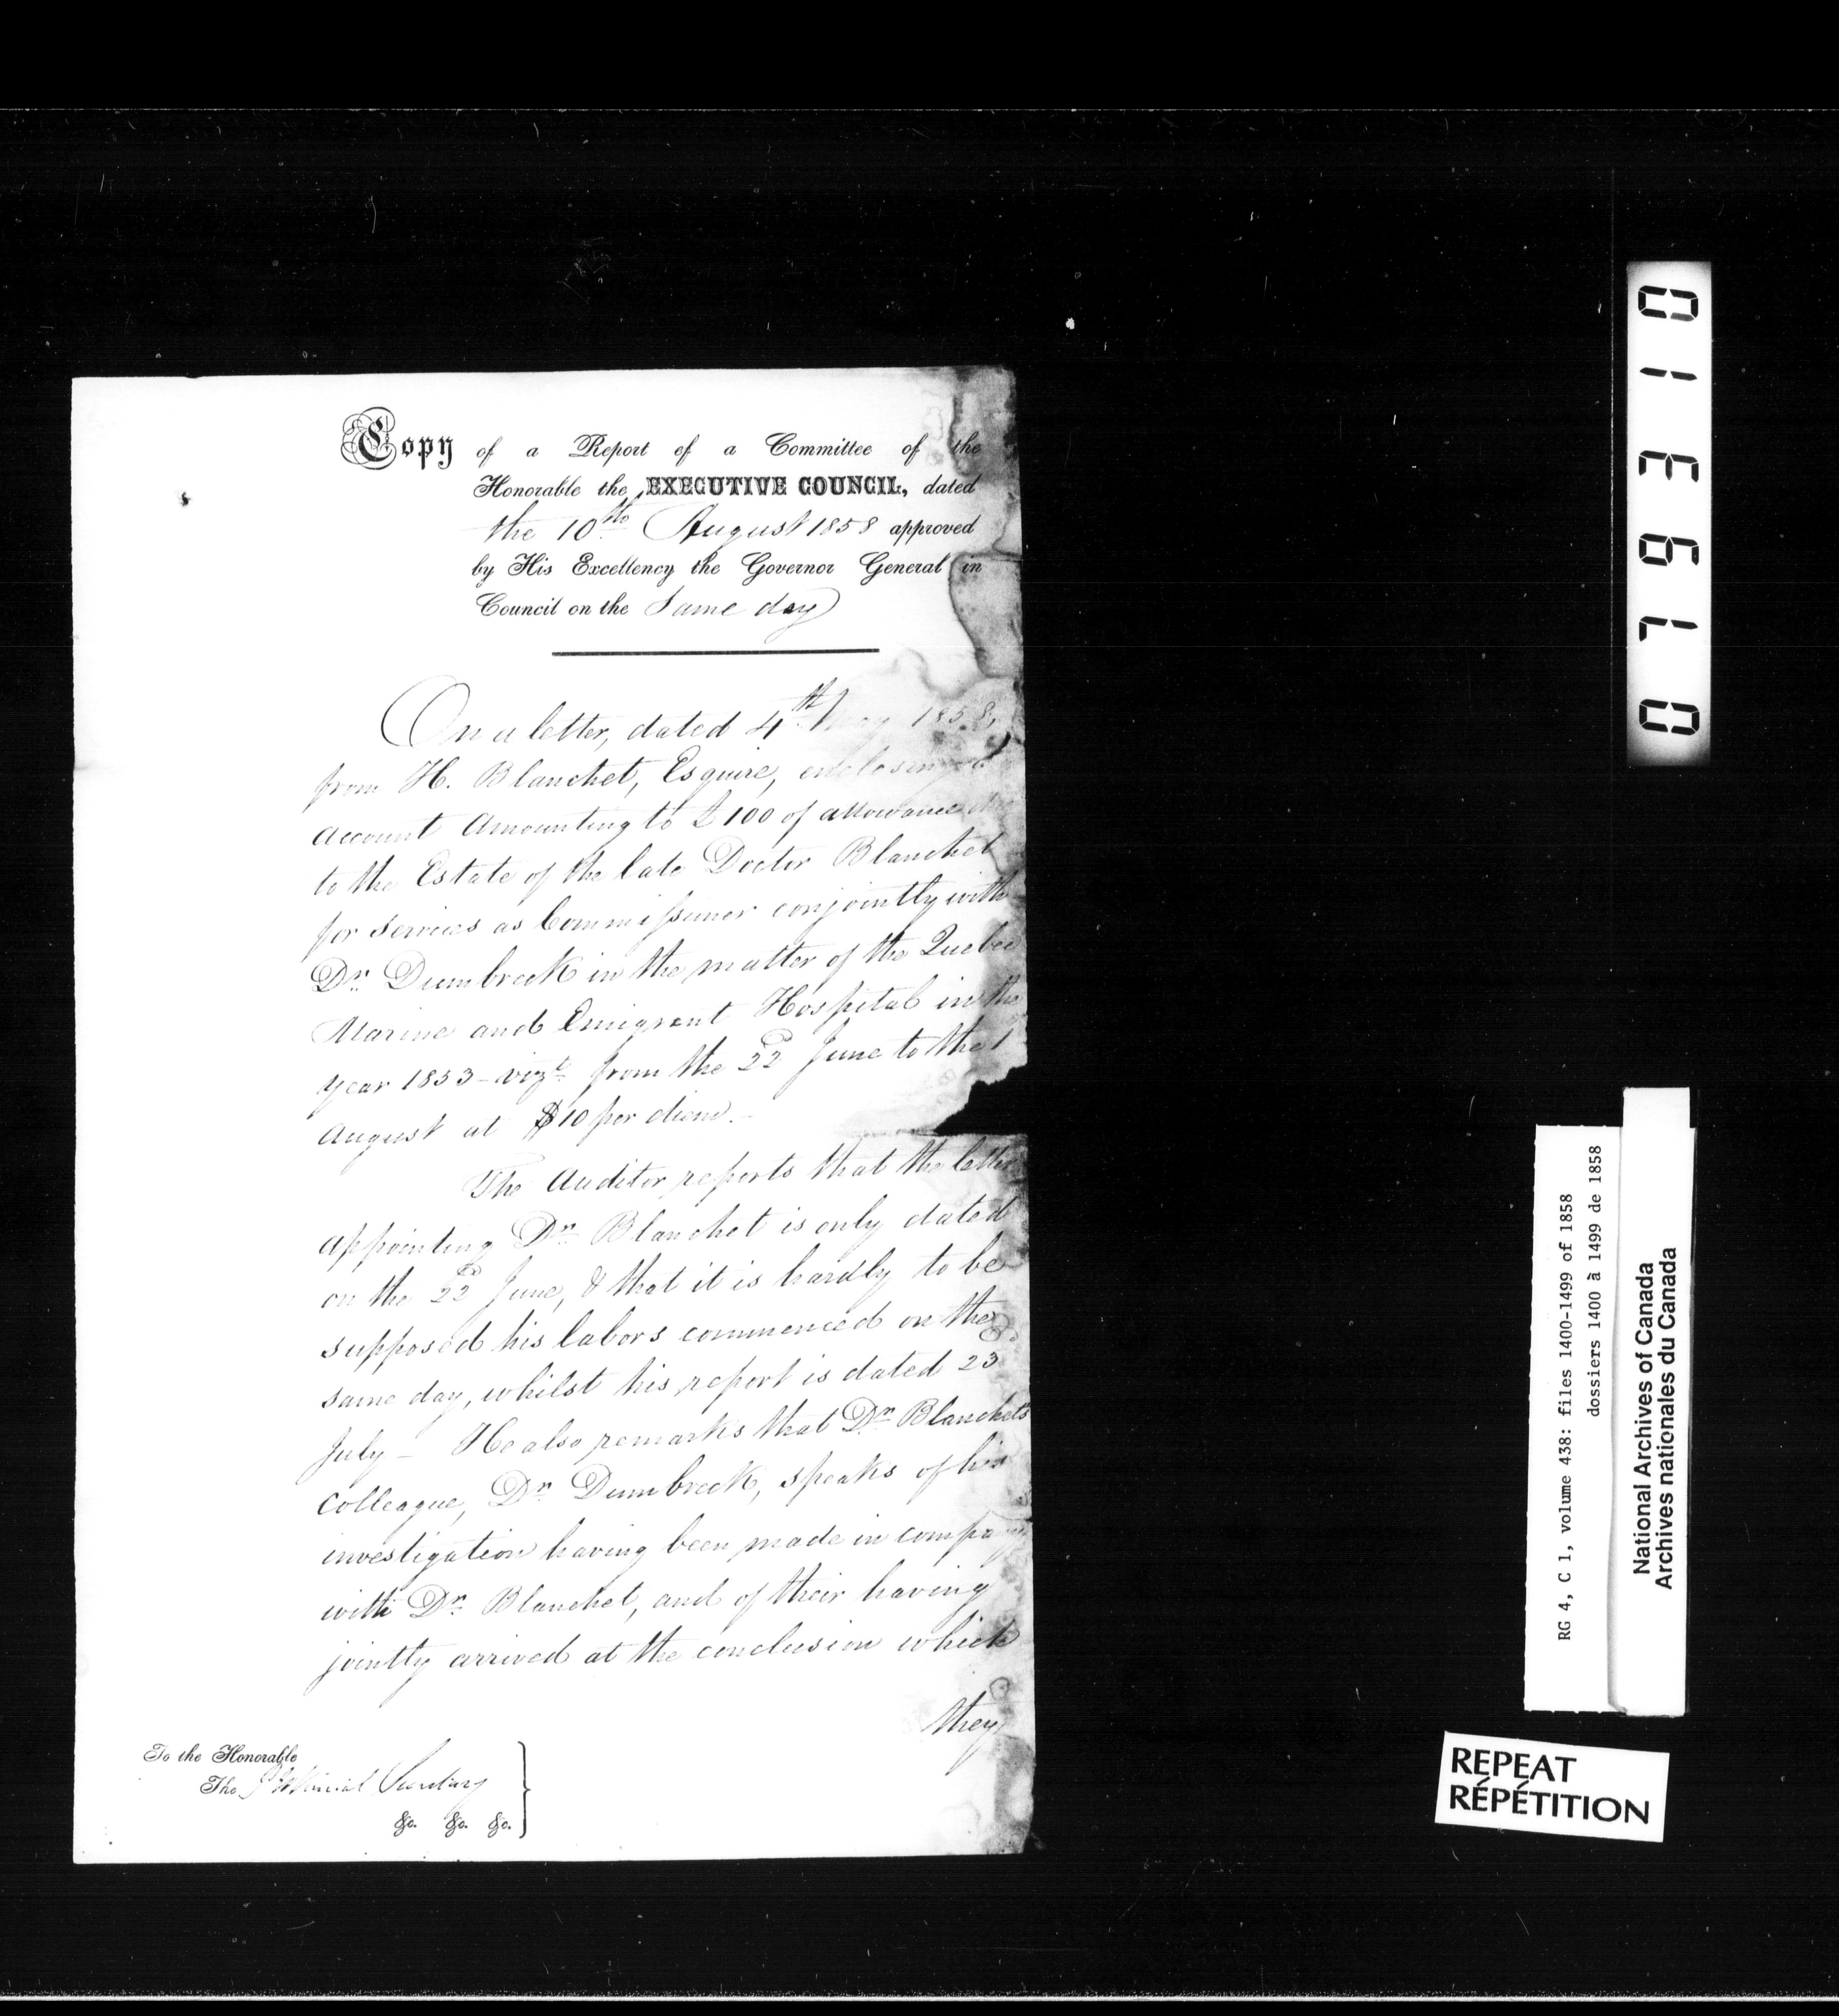 Copy of a Report of a Committee of the
Honorable the EXECUTIVE COUNCIL, dated
the 10th August 1858 approved
by His Excellency the Governor General in
Council on the Same day
On a letter, dated 4th May 1858,
from H. Blanchet, Esquire, enclosing
Account Amounting to £100 of allowance
to the Estate of the late Doctor Blanchet
for services as Commissioner conjointly with
Dr. Dumbreck in the matter of the Quebec
Marine and Emigrant Hospital in the
year 1853 - vizt. from the 22d June to the 1
August at $10 per diem. -
The Auditor reports that the letter
appointing Dr. Blanchet is only dated
on the 22d June, & that it is hardly to be
supposed his labors commenced on the
same day, whilst his report is dated 23d
July - He also remarks that Dr. Blanchets
colleague, Dr. Dumbreck, speaks of his
investigation having been made in company
with Dr. Blanchet, and of their having
jointly arrived at the conclusion which
they
To the Honorable
The Provincial Secretary
&c. &c. &c.
013670
RG 4, C 1, volume 438: files 1400-1499 of 1858
dossiers 1400 à 1499 de 1858
National Archives of Canada
Archives nationales du Canada
REPEAT
RÉPÉTITION